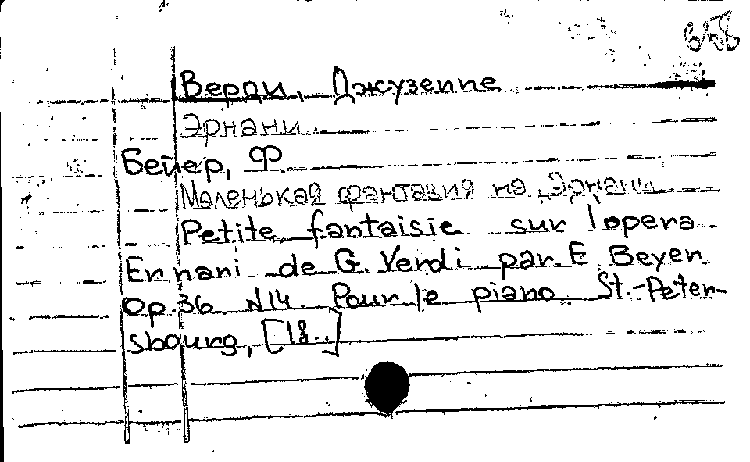 658
Верди, Джузеппе
Эрнани.
Бейер, Ф
Маленькая фантазия на "Эрнани"
Petite fantaisie sur l'opera
Ernani de G. Verdi par E Beyer
Op. 36 N14. Pour le piano. St.-Peter-
sbourg, [18..]